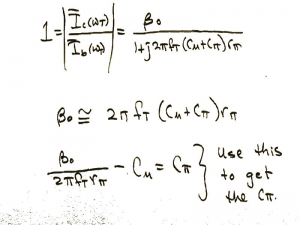 1 = | I̅c(ωT) / I̅b(ωT) | = β₀ / 1+j2πfT(Cμ+Cπ)rπ
β₀ ≅ 2π fT (Cμ+Cπ)rπ
β₀ / 2πfTrπ - Cμ = Cπ } Use this
to get
the Cπ.